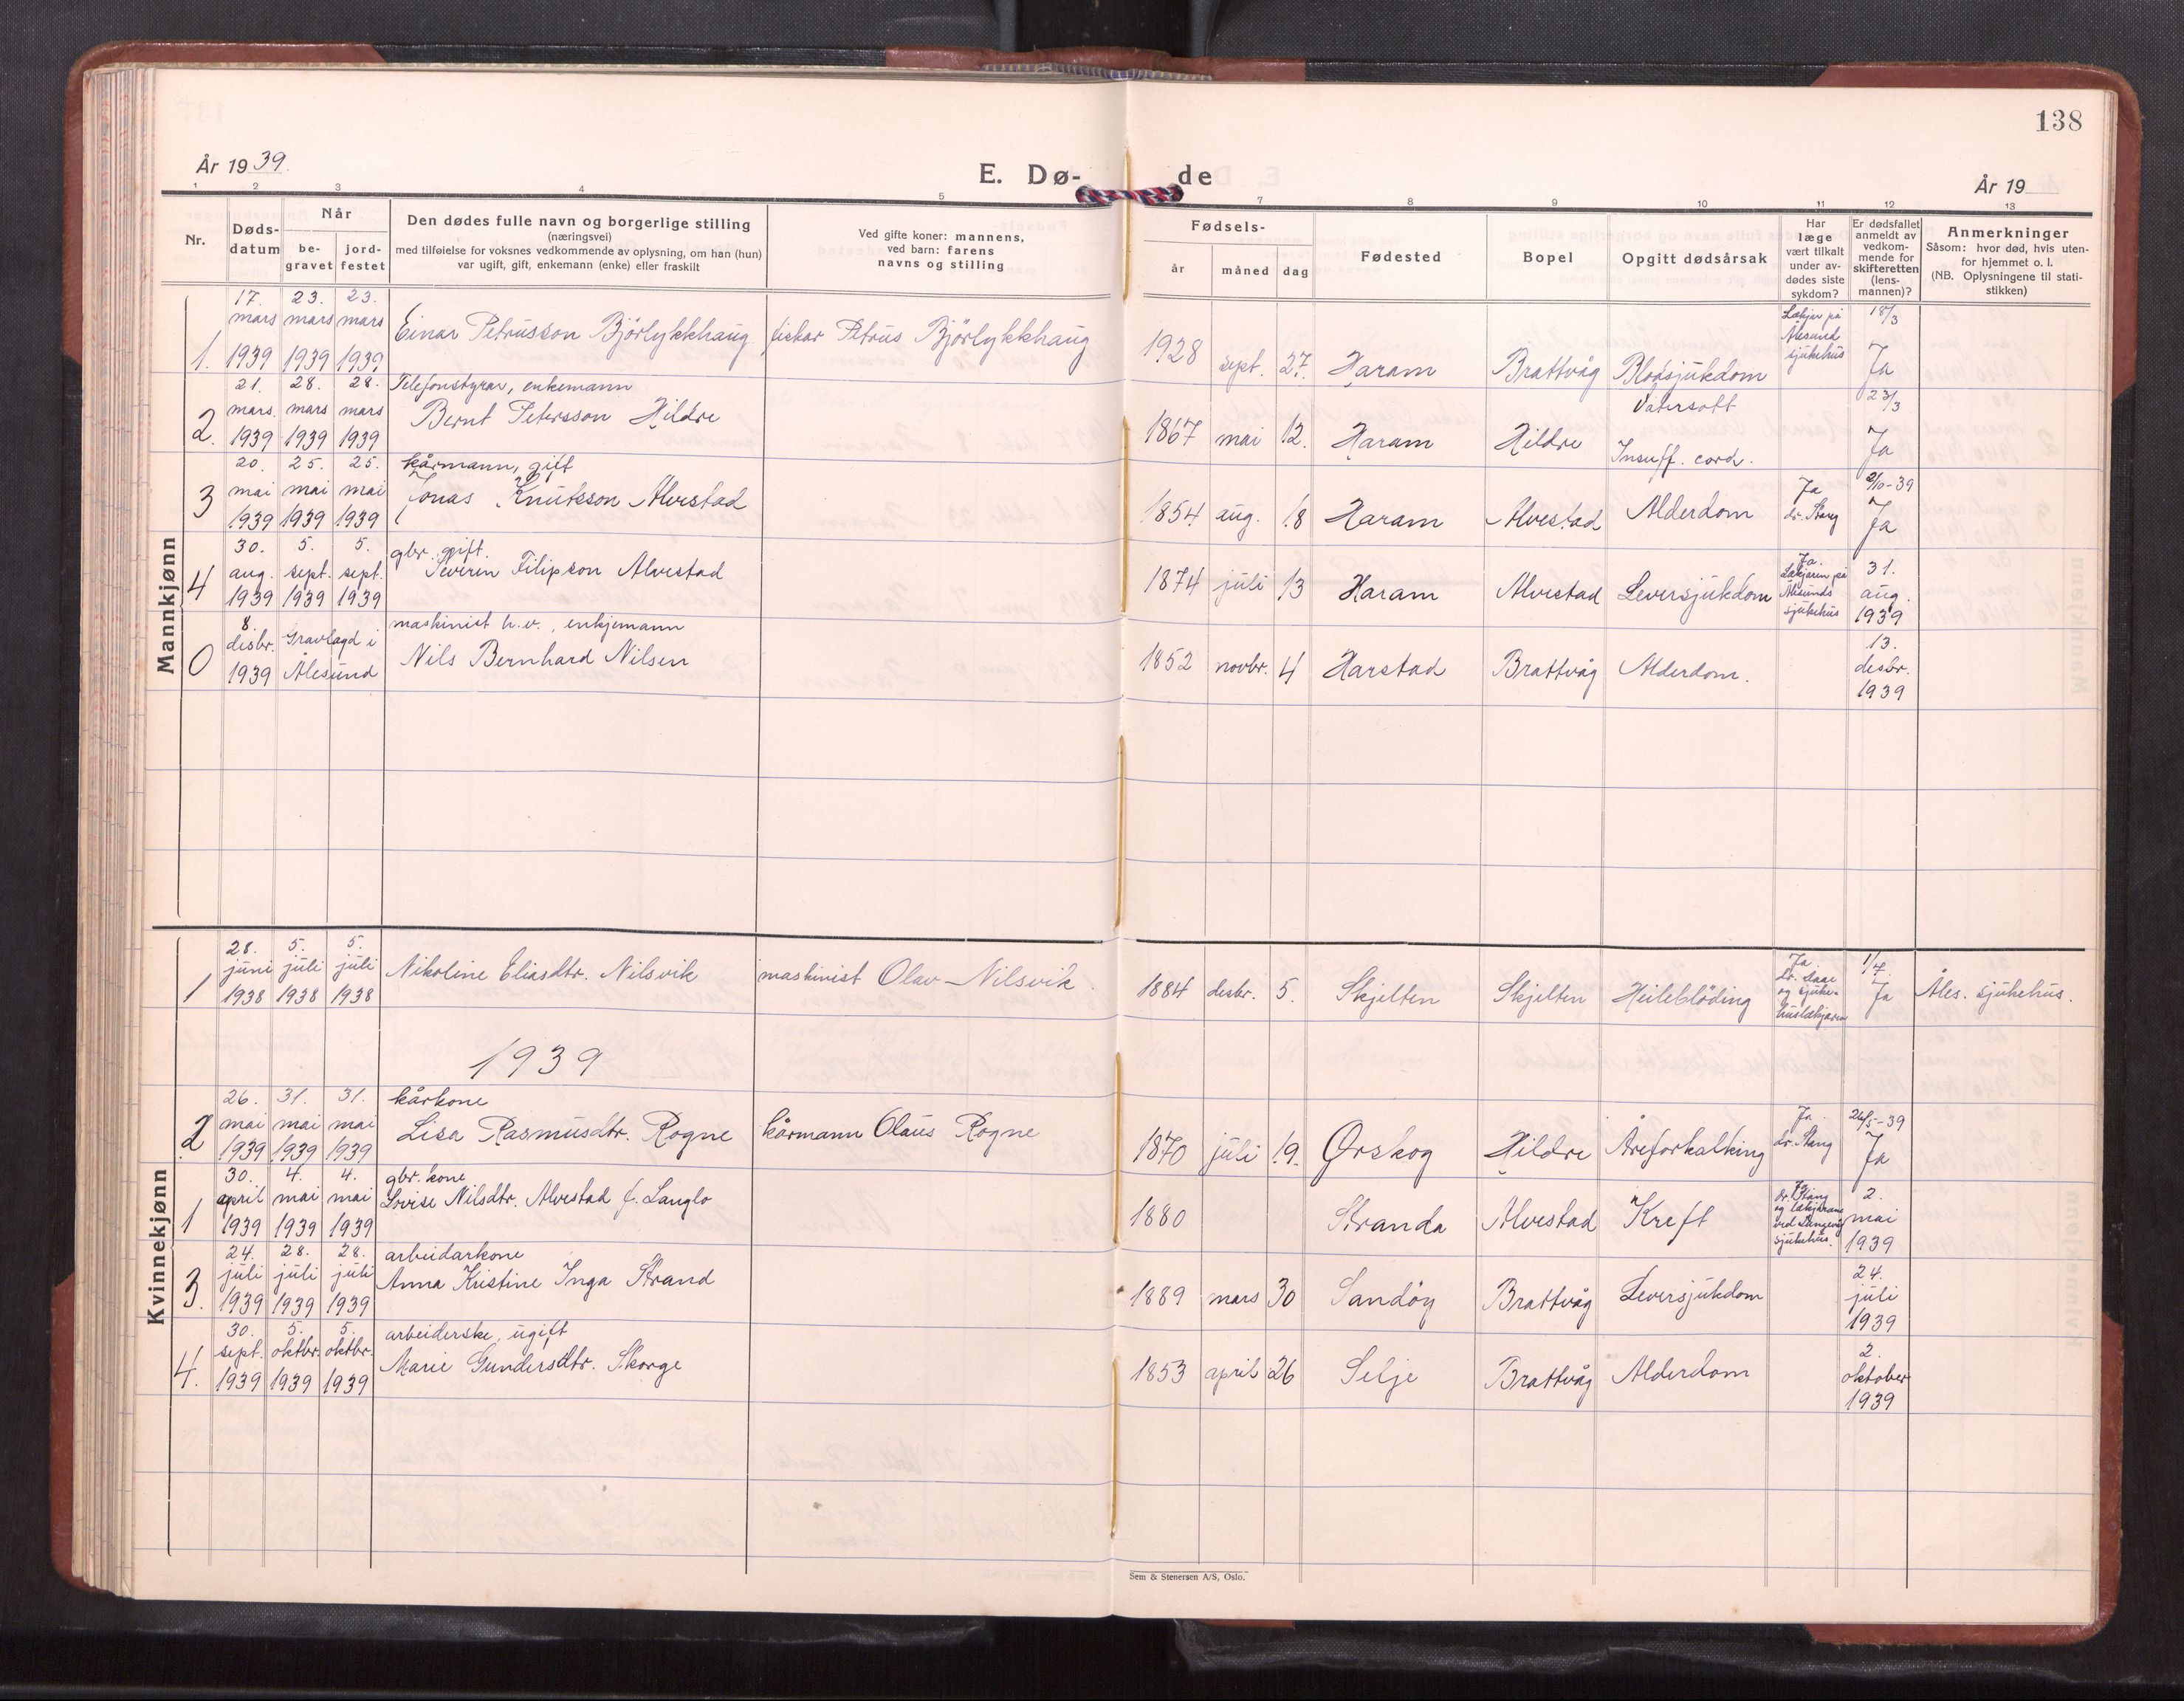 138
År 1939.
E. Dø-
de
År 19
1 2 3 4 5 7 8 9 10 11 12 13
Nr.
Døds-
datum
Når
be-
gravet
jord-
festet
Den dødes fulle navn og borgerlige stilling
(næringsvei)
med tilføielse for voksnes vedkommende av oplysning, om han (hun)
var ugift, gift, enkemann (enke) eller fraskilt
Ved gifte koner: mannens,
ved barn: farens
navns og stilling
Fødsels-
år måned dag
Fødested
Bopel
Opgitt dødsårsak
Har
læge
vært tilkalt
under av-
dødes siste
sykdom?
Er dødsfallet
anmeldt av
vedkom-
mende for
skifteretten
(lens-
mannen)?
Anmerkninger
Såsom: hvor død, hvis uten-
for hjemmet o. l.
(NB. Oplysningene til stati-
stikken)
Mannkjønn
17. 23. 23.
mars mars mars
1. 1939 1939 1939
Einar Petrusson Björlykkhaug
fiskar Petrus Björlykkhaug
1928 sept. 27. Haram Brattvåg Blodsjukdom
Lækjar på
Ålesund
sjukehus
18/3
Ja
21. 28. 28.
mars. mars mars
2. 1939 1939 1939
Telefonstyrar, enkemann
Bernt Petersson Hildre
1867 mai 12. Haram Hildre
Vatersott
Insuff. cord.
23/3
Ja
20. 25. 25.
mai mai mai
3 1939 1939 1939
kårmann, gift
Jonas Knutsson Alvestad
1854 aug. 18 Haram Alvestad Alderdom
Ja
dr. Stang
2/10-39
Ja
30. 5. 5.
aug. sept. sept.
4 1939 1939 1939
gbr. gift.
Severin Filipson Alvestad
1874 juli 13 Haram Alvestad Leversjukdom
Ja.
Lækjaren på
Ålesunds
sjukehus
31.
aug.
1939
8.
desbr. Gravlagd i
0 1939 Ålesund
maskinist h.v., enkjemann
Nils Bernhard Nilsen
1852 novbr. 4 Harstad Brattvåg Alderdom.
13.
desbr.
1939
Kvinnekjønn
28. 5. 5.
juni juli juli
1 1938 1938 1938
Nikoline Eliasdtr. Nilsvik
maskinist Olav Nilsvik.
1884 desbr. 5. Skjelten Skjelten Heileblöding
Ja.
dr. Saae
og sjuke-
huslækjaren
1/7.
Ja
Åles. sjukehus.
1939
26. 31. 31.
mai mai mai
2 1939 1939 1939
kårkone
Lisa Rasmusdtr. Rogne
kårmann Olaus Rogne
1870 juli 19. Ørskog Hildre Åreforkalking
Ja.
dr. Stang
26/5-39
Ja
30. 4. 4.
april mai mai
1 1939 1939 1939
gbr. kone
Lovise Nilsdtr. Alvestad f. Langlo
1880 Stranda Alvestad Kreft
Ja
dr. Stang
og lækjarane
ved Langevåg
sjukehus.
2.
mai
1939
24. 28. 28.
juli juli juli
3. 1939 1939 1939
arbeidarkone
Anna Kristine Inga Strand
1889 mars 30 Sandöy Brattvåg Leversjukdom
24.
juli
1939
30. 5. 5.
sept. oktbr. oktbr.
4. 1939 1939 1939
arbeiderske, ugift
Marie Gundersdtr. Skorge
1853 april 26 Selje Brattvåg Alderdom
2.
oktober
1939
Sem & Stenersen A/S, Oslo.